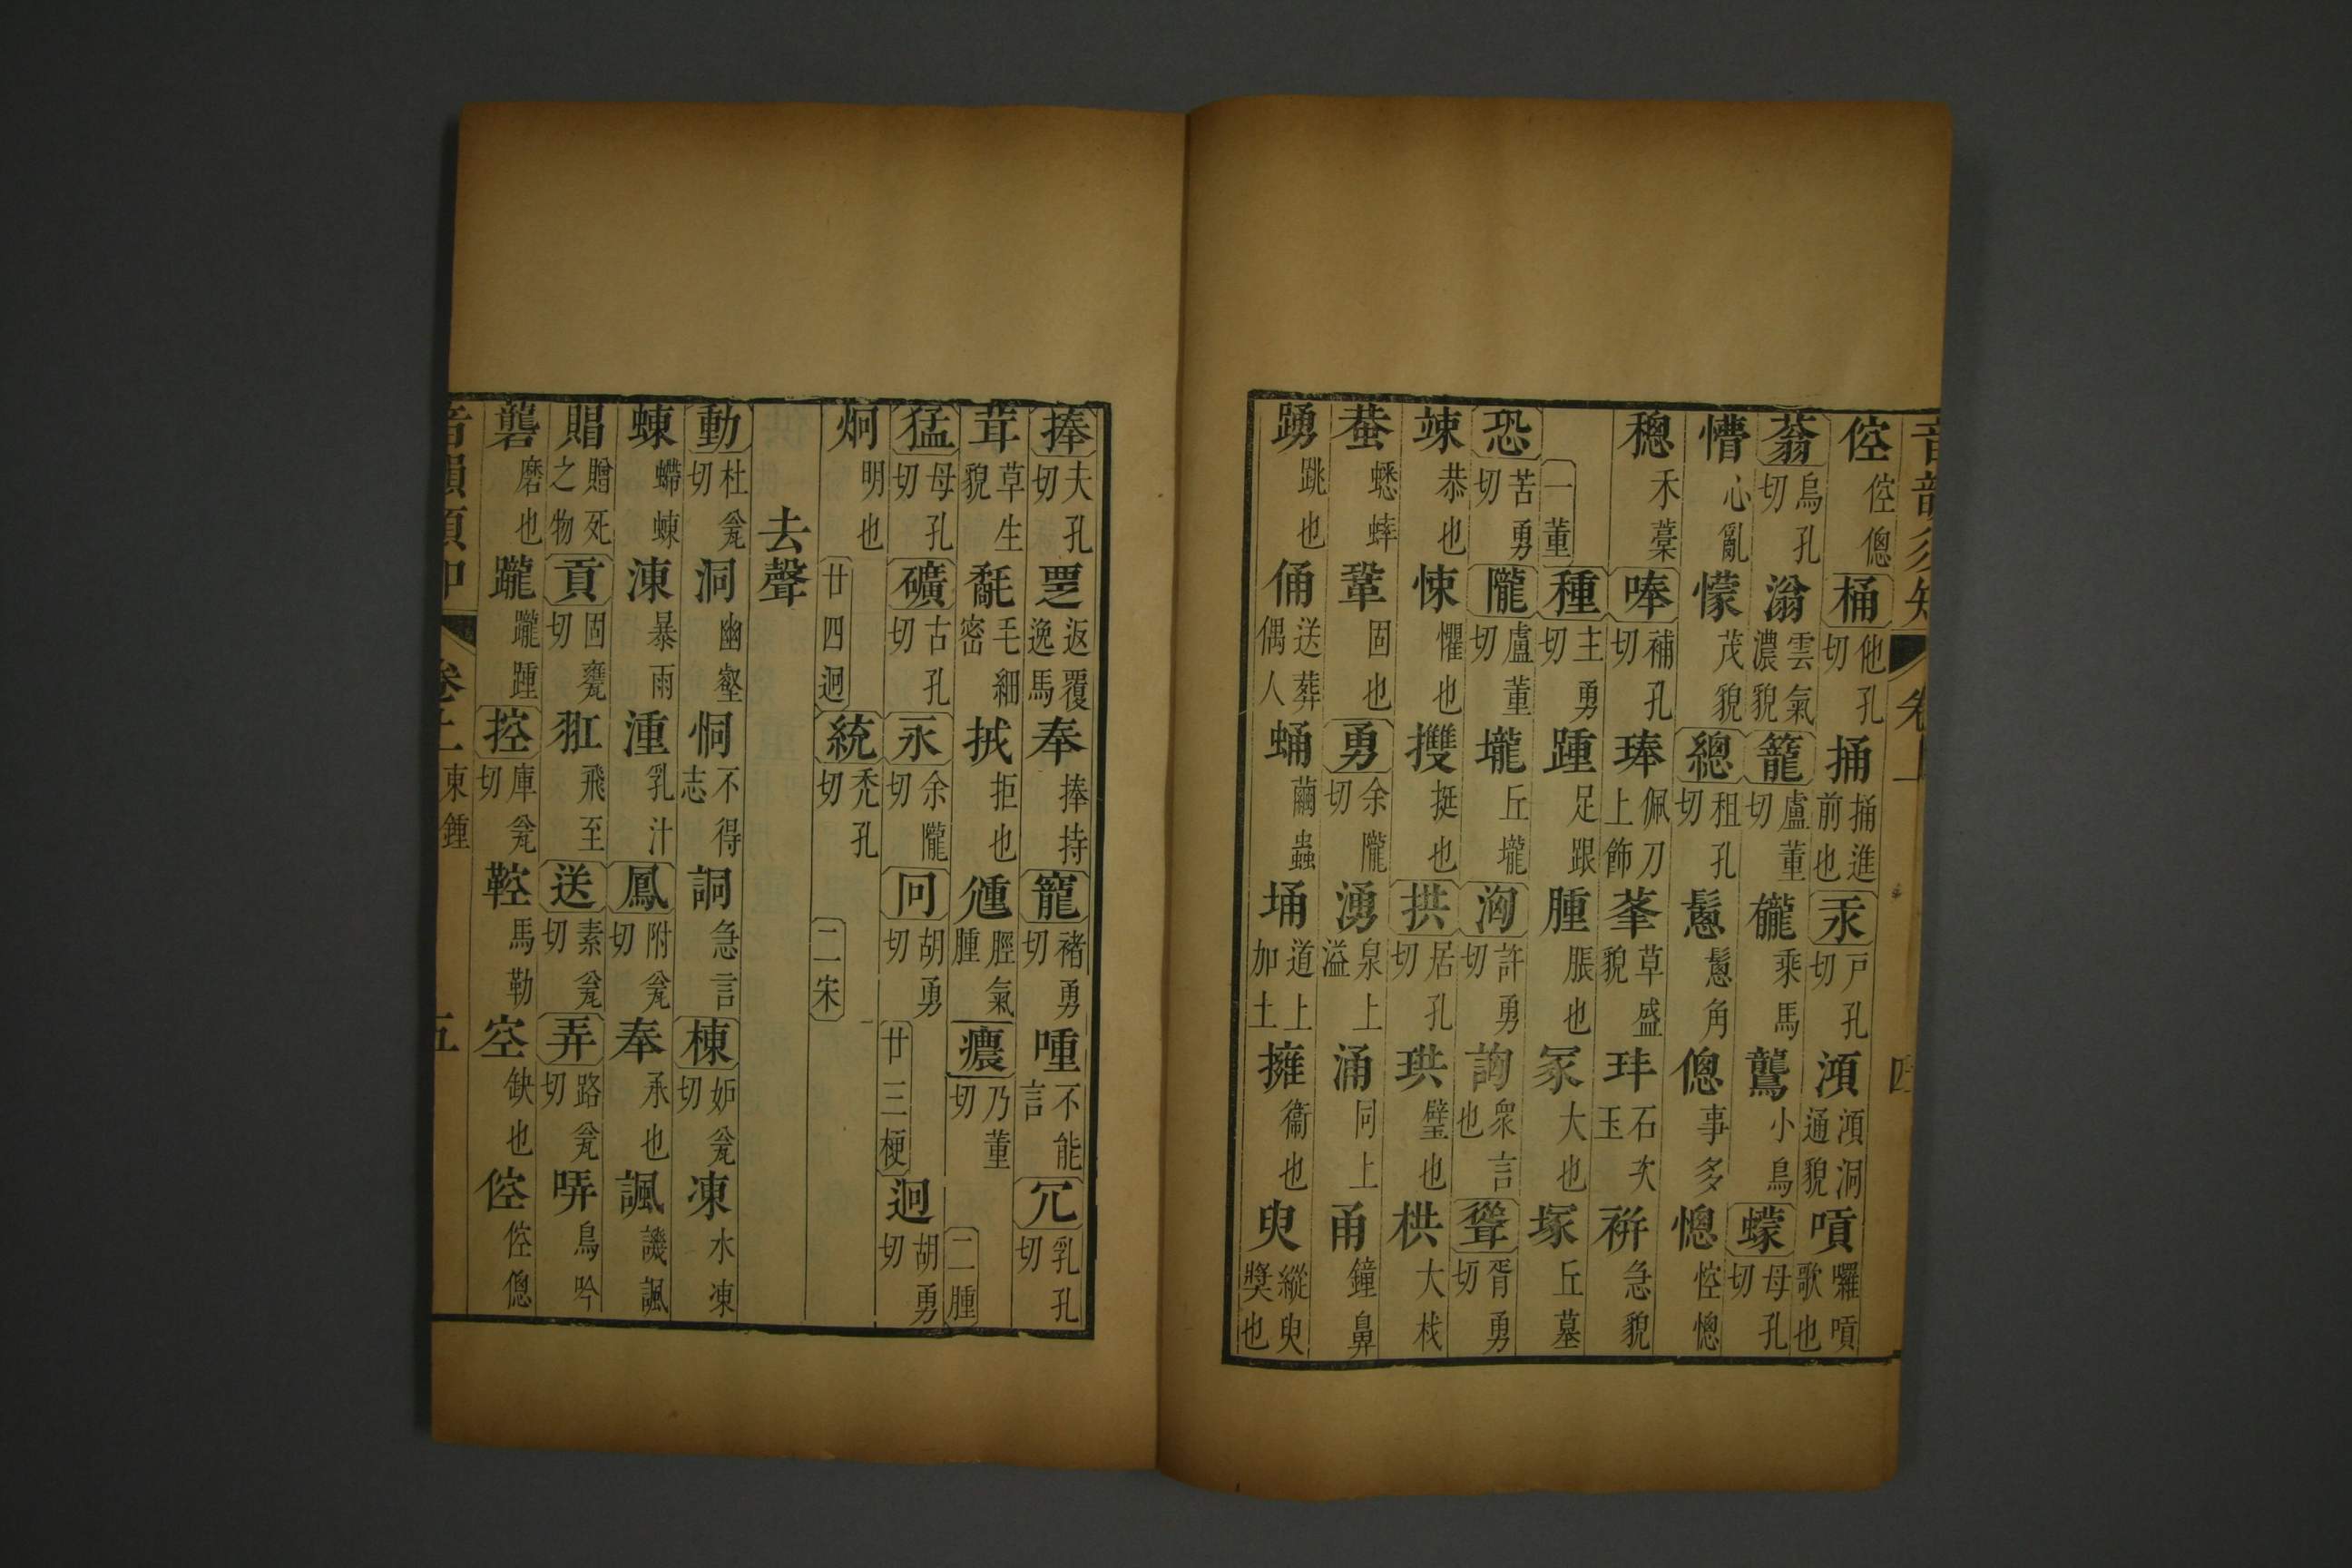 音韻須知 卷上 四
倥倥傯桶他孔切捅捅進前也汞戸孔切澒澒洞通貌嗊囉嗊歌也
蓊烏孔切滃雲氣濃貌籠盧董切儱乘馬鸗小鳥蠓母孔切
懵心亂懞茂貌總租孔切鬆鬆角傯事多憁悾憁
穗禾藁唪補孔切琫佩刀上飾菶草盛貌玤石次玉𥙷急貌
一董種主勇切踵足跟腫脹也冢大也塚丘墓
恐苦勇切隴盧董切壠丘壠洶許勇切詾衆言也聳胥勇切
竦恭也悚懼也㩳挺也拱居孔切珙璧也栱大栈
蛬蟋蟀鞏固也勇余隴切湧泉上溢涌同上甬鐘鼻
踴跳也俑送葬偶人蛹繭蟲埇道上加土擁衞也臾縱臾獎也
捧夫孔切覂返覆逸馬奉捧持寵褚勇切喠不能言冗乳孔切
茸草生貌氄毛細密拭拒也尰脛氣腫癑乃董切二腫
猛母孔切礦古孔切永余隴切冋胡勇切廿三梗迥胡勇切
炯明也廿四迥統禿孔切二宋
去聲
動杜瓮切洞幽壑恫不得志詷急言棟妒瓮切凍水凍
蝀螮蝀涷暴雨湩乳汁鳳附瓮切奉承也諷譏諷
賵贈死之物貢固甕切𦏺飛至送素瓮切弄路瓮切哢鳥吟
礱磨也躘躘踵控庫瓮切鞚馬勒空缺也倥倥傯
音韻須知 卷上 東鍾 五